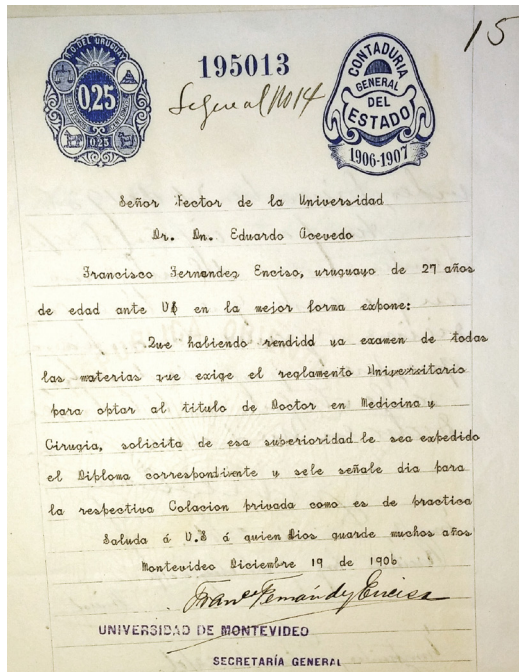 15
R.O. DEL URUGUAY
0,25
0,25
195013
Sigue al No 14
CONTADURIA
GENERAL
DEL
ESTADO
1906-1907
Señor Rector de la Universidad
Dr. Dn. Eduardo Acevedo
Francisco Fernandez Enciso, uruguayo de 27 años
de edad ante US en la mejor forma expone:
Que habiendo rendido ya examen de todas
las materias que exige el reglamento Universitario
para optar al titulo de Doctor en Medicina y
Cirugia, solicita de esa superioridad le sea expedido
el Diploma correspondiente y sele señale dia para
la respectiva Colacion privada como es de practica
Saluda á U.S á quien Dios guarde muchos años
Montevideo Diciembre 19 de 1906
Franco Fernández Enciso
UNIVERSIDAD DE MONTEVIDEO
SECRETARÍA GENERAL